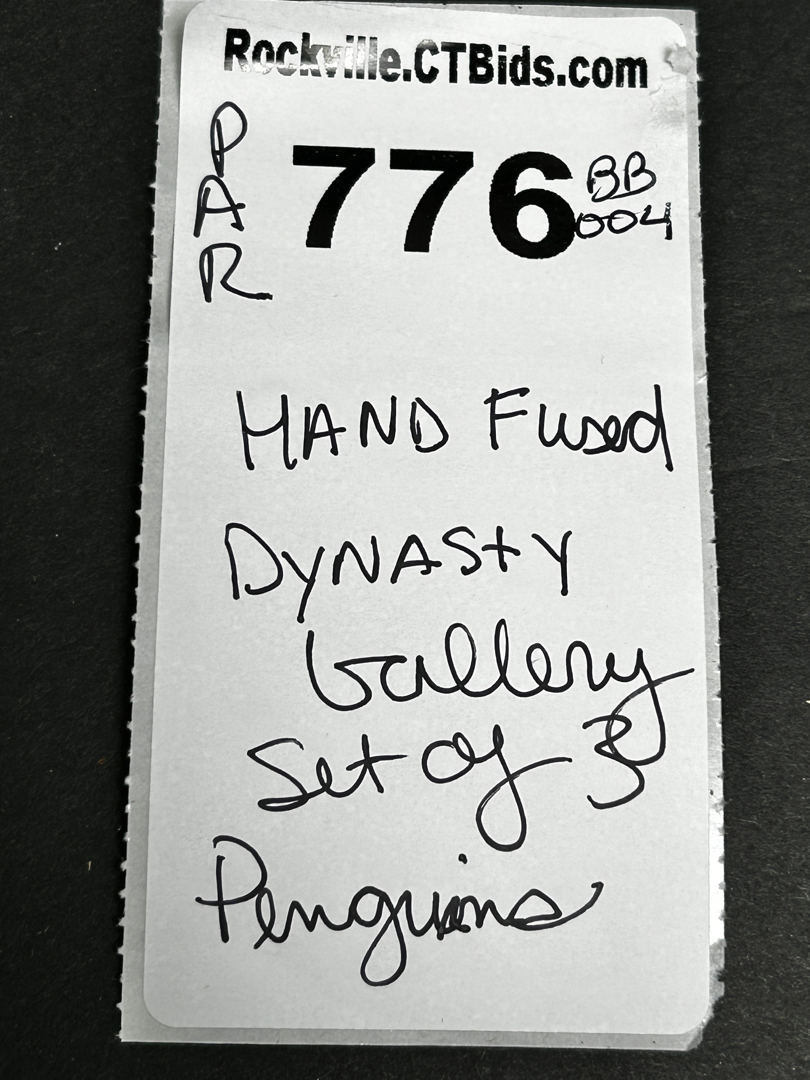 Rockville.CTBids.com
PAR
776
BB
004
HAND Fused
DYNASTY
Gallery
Set of 3
Penguins